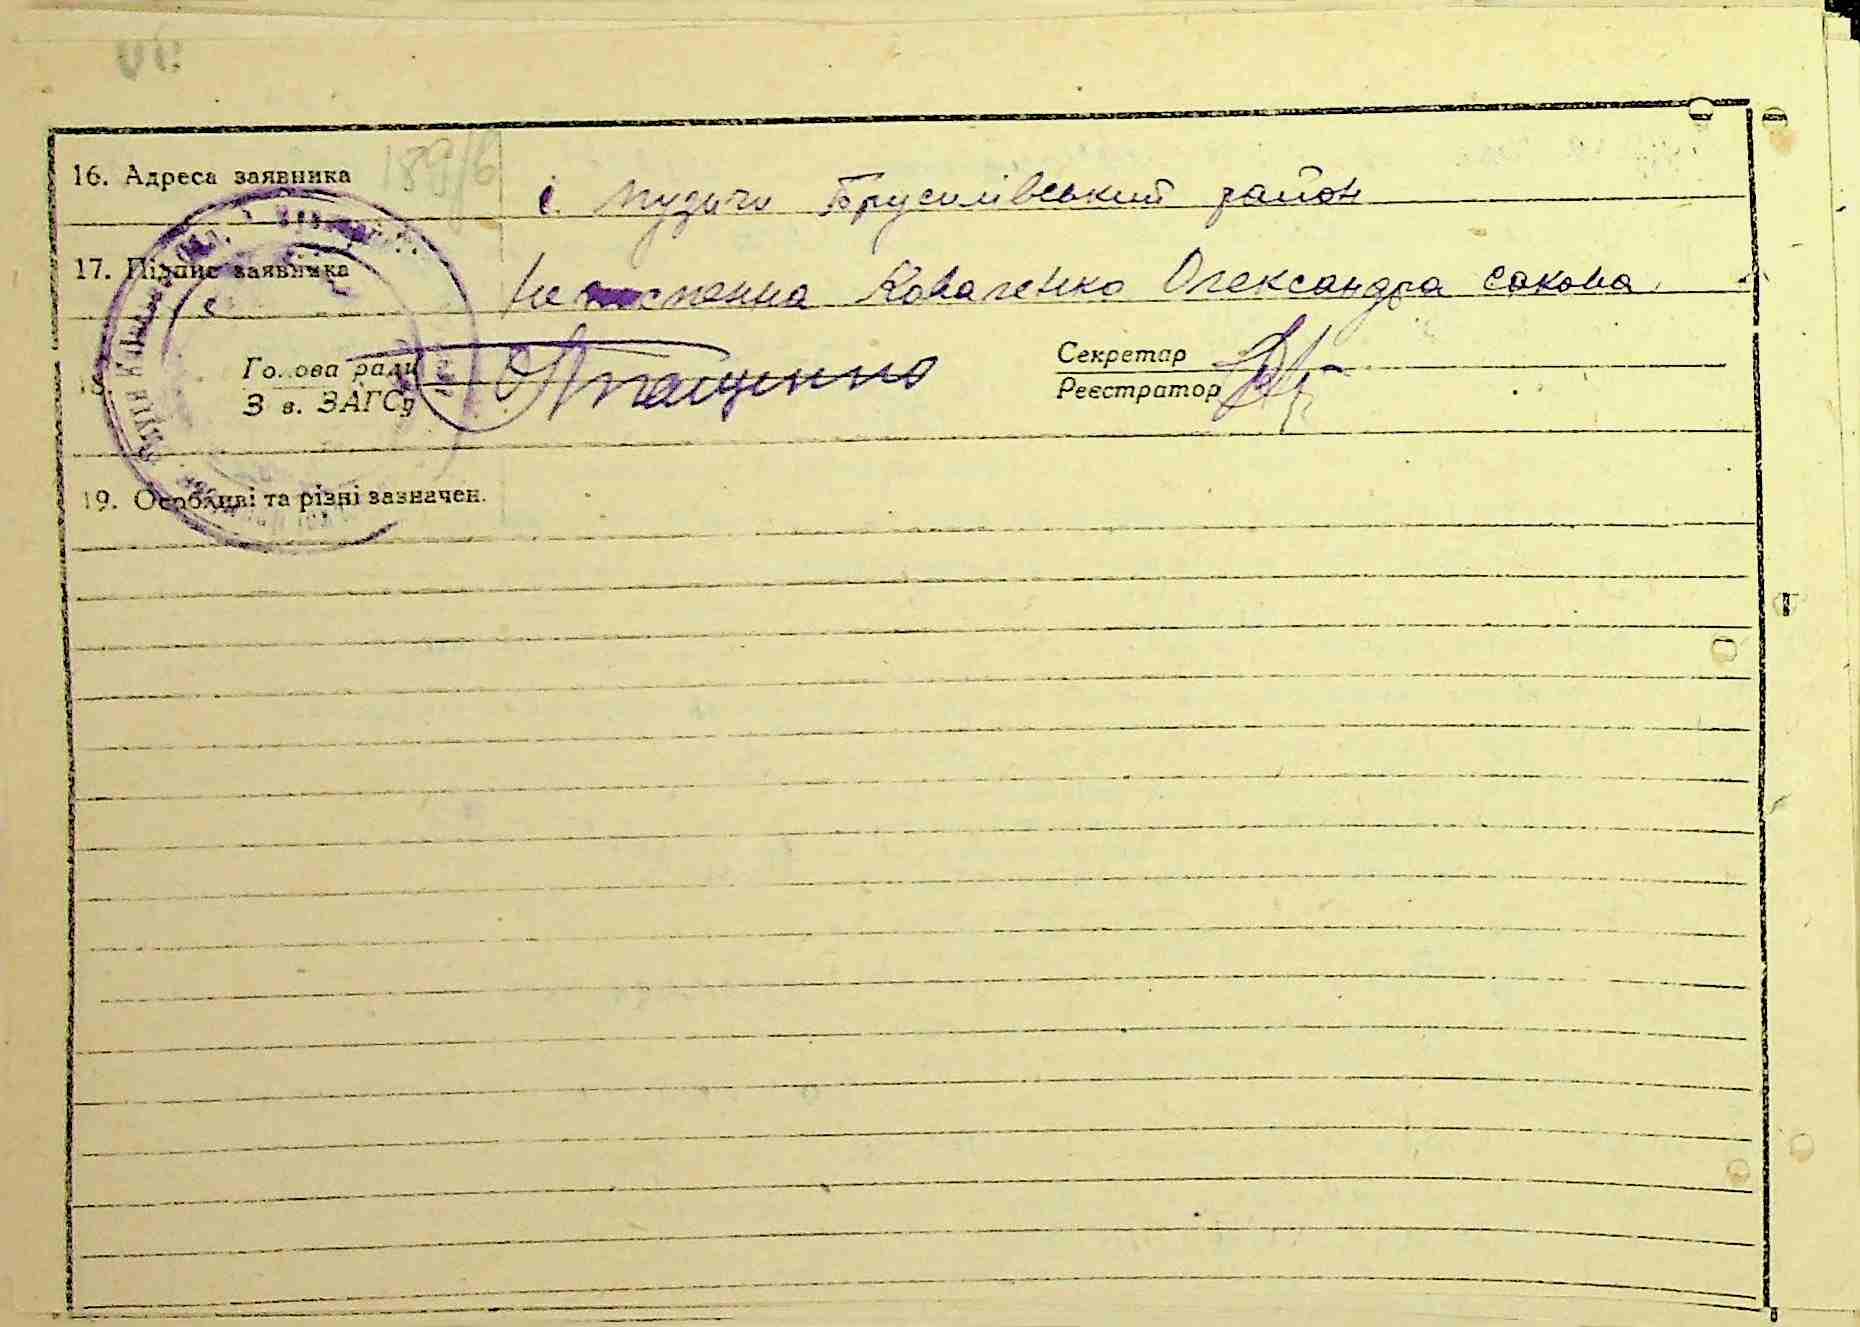 189/6
16. Адреса заявника с. Мудичи Брусилівський район
17. Підпис заявника Неписменна Коваленко Олександра Сакова.
18. Голова ради Секретар
З в. ЗАГСу Реєстратор
19. Особливі та різні зазначен.